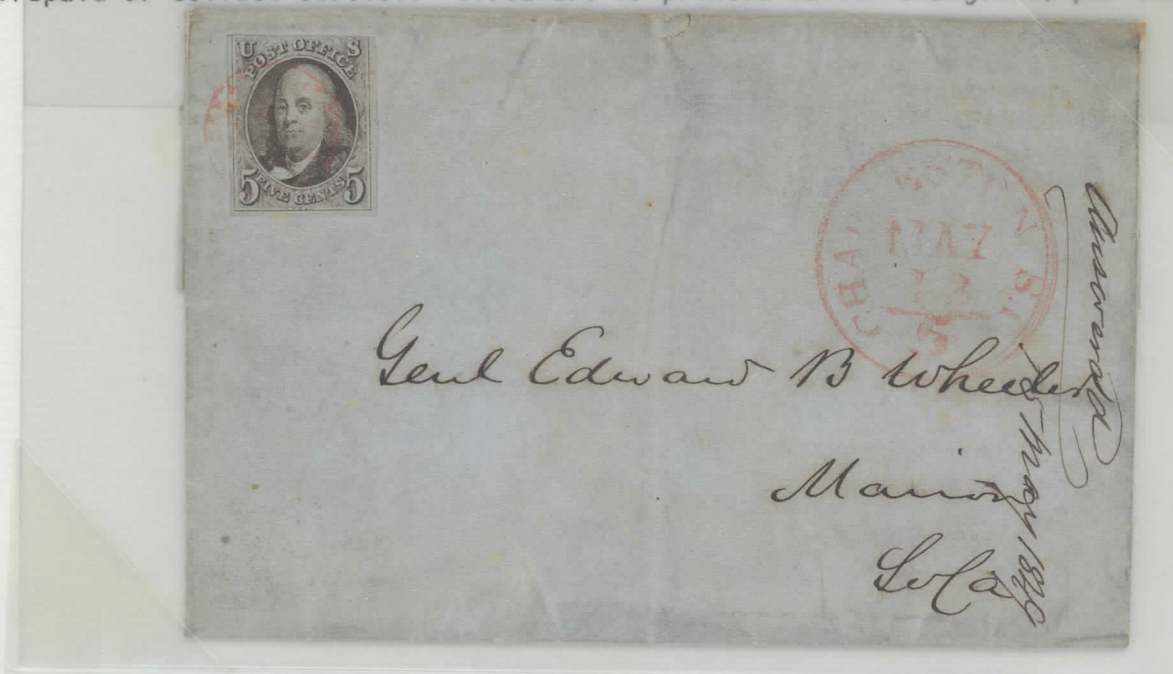 U S
POST OFFICE
5 FIVE CENTS 5
CHARLESTON S.C
MAY
12
5
Genl Edward B Wheeler
Marion
So Ca
Answered
May 1848